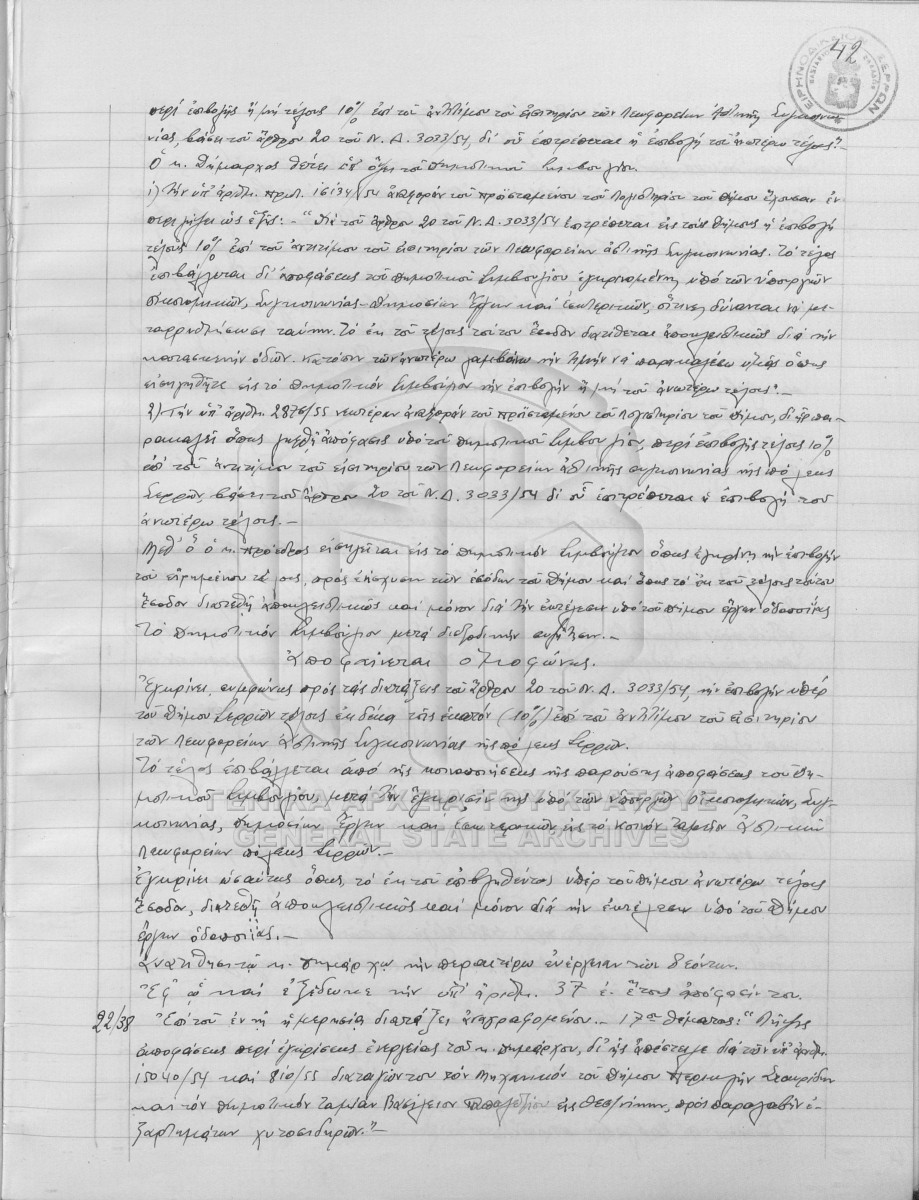 42
ΕΙΡΗΝΟΔΙΚΕΙΟΝ ΣΕΡΡΩΝ
περί ἐπιβολῆς ἤ μή τέλους 10% ἐπί τοῦ ἀντιτίμου τοῦ εἰσιτηρίου τῶν Λεωφορείων Ἀστικῆς Συγκοινω-
νίας, βάσει τοῦ ἄρθρου 20 τοῦ Ν.Δ. 3033/54, δι' οὗ ἐπιτρέπεται ἡ ἐπιβολή τοῦ ἀνωτέρω τέλους".-
Ὁ κ. Δήμαρχος θέτει ὑπ' ὄψει τοῦ Δημοτικοῦ Συμβουλίου.
1) Τήν ὑπ' ἀριθμ. πρωτ. 16134/54 ἀναφοράν τοῦ προϊσταμένου τοῦ Λογιστηρίου τοῦ Δήμου ἔχουσαν ἐν
περιλήψει ὡς ἑξῆς:- "Διά τοῦ ἄρθρου 20 τοῦ Ν.Δ. 3033/54 ἐπιτρέπεται εἰς τούς Δήμους ἡ ἐπιβολή
τέλους 10% ἐπί τοῦ ἀντιτίμου τοῦ εἰσιτηρίου τῶν Λεωφορείων ἀστικῆς Συγκοινωνίας. Τό τέλος
ἐπιβάλλεται δι' ἀποφάσεως τοῦ Δημοτικοῦ Συμβουλίου ἐγκρινομένης ὑπό τῶν Ὑπουργῶν
Οἰκονομικῶν, Συγκοινωνίας-Δημοσίων Ἔργων καί Ἐσωτερικῶν, οἵτινες δύνανται νά με-
ταρρυθμίσωσι ταύτην. Τό ἐκ τοῦ τέλους τούτου ἔσοδον διατίθεται ἀποκλειστικῶς διά τήν
κατασκευήν ὁδῶν. Κατόπιν τῶν ἀνωτέρω λαμβάνω τήν τιμήν νά παρακαλέσω ὑμᾶς ὅπως
εἰσηγηθῆτε εἰς τό Δημοτικόν Συμβούλιον τήν ἐπιβολήν ἤ μή τοῦ ἀνωτέρω τέλους".-
2) Τήν ὑπ' ἀριθμ. 2876/55 νεωτέραν ἀναφοράν τοῦ προϊσταμένου τοῦ Λογιστηρίου τοῦ Δήμου, δι' ἧς πα-
ρακαλεῖ ὅπως ληφθῇ ἀπόφασις ὑπό τοῦ Δημοτικοῦ Συμβουλίου, περί ἐπιβολῆς τέλους 10%
ἐπί τοῦ ἀντιτίμου τοῦ εἰσιτηρίου τῶν Λεωφορείων ἀστικῆς συγκοινωνίας τῆς πόλεως
Σερρῶν, βάσει τοῦ ἄρθρου 20 τοῦ Ν.Δ. 3033/54 δι' οὗ ἐπιτρέπεται ἡ ἐπιβολή τοῦ
ἀνωτέρω τέλους.-
Μεθ' ὅ ὁ κ. πρόεδρος εἰσηγεῖται εἰς τό Δημοτικόν Συμβούλιον ὅπως ἐγκρίνῃ τήν ἐπιβολήν
τοῦ εἰρημένου τέλους, πρός ἐνίσχυσιν τῶν ἐσόδων τοῦ Δήμου καί ὅπως τό ἐκ τοῦ τέλους τούτου
ἔσοδον διατεθῇ ἀποκλειστικῶς καί μόνον διά τήν ἐκτέλεσιν ὑπό τοῦ Δήμου ἔργων ὁδοποιΐας
Τό Δημοτικόν Συμβούλιον μετά διεξοδικήν συζήτησιν.-
Ἀποφαίνεται ὁμοφώνως.
Ἐγκρίνει, συμφώνως πρός τάς διατάξεις τοῦ ἄρθρου 20 τοῦ Ν.Δ. 3033/54, τήν ἐπιβολήν ὑπέρ
τοῦ Δήμου Σερρῶν τέλους ἐκ δέκα τοῖς ἑκατόν (10%) ἐπί τοῦ ἀντιτίμου τοῦ εἰσιτηρίου
τῶν Λεωφορείων ἀστικῆς Συγκοινωνίας τῆς πόλεως Σερρῶν.
Τό τέλος ἐπιβάλλεται ἀπό τῆς κοινοποιήσεως τῆς παρούσης ἀποφάσεως τοῦ Δη-
μοτικοῦ Συμβουλίου, μετά τήν ἔγκρισίν της ὑπό τῶν Ὑπουργῶν Οἰκονομικῶν, Συγ-
κοινωνίας, Δημοσίων Ἔργων καί Ἐσωτερικῶν εἰς τό Κοινόν Ταμεῖον Ἀστικῶν
Λεωφορείων πόλεως Σερρῶν.-
Ἐγκρίνει ὡσαύτως ὅπως, τό ἐκ τοῦ ἐπιβληθέντος ὑπέρ τοῦ Δήμου ἀνωτέρω τέλους
ἔσοδον, διατεθῇ ἀποκλειστικῶς καί μόνον διά τήν ἐκτέλεσιν ὑπό τοῦ Δήμου
ἔργων ὁδοποιΐας.-
Ἀνατίθησι τῷ κ. Δημάρχῳ τήν περαιτέρω ἐνέργειαν τῶν δεόντων.
Ἐφ' ᾧ καί ἐξέδωκε τήν ὑπ' ἀριθμ. 37 ἐ. ἔτους ἀπόφασίν του.
22/38 Ἐπί τοῦ ἐν τῇ ἡμερησίᾳ διατάξει ἀναγραφομένου.- 17ου θέματος: "Λῆψις
ἀποφάσεως περί ἐγκρίσεως ἐνεργείας τοῦ κ. Δημάρχου, δι' ἧς ἀπέστειλε διά τῶν ὑπ' ἀριθμ.
15040/54 καί 810/55 διαταγῶν του τόν Μηχανικόν τοῦ Δήμου Περικλῆν Σταυρίδην
καί τόν Δημοτικόν Ταμίαν Βασίλειον εἰς Θεσ/νίκην, πρός παραλαβήν ἐ-
ξαρτημάτων χυτοσιδηρῶν."-
ΓΕΝΙΚΑ ΑΡΧΕΙΑ ΤΟΥ ΚΡΑΤΟΥΣ
GENERAL STATE ARCHIVES